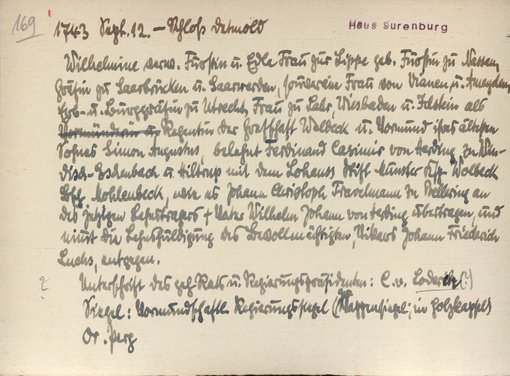 169
1743 Sept. 12. – Schloß Detmold
Haus Surenburg
Wilhelmine verw. Fürstin u. Edle Frau zur Lippe geb. Fürstin zu Nassau,
Gräfin zu Saarbrücken u. Saarwerden, souverain Frau von Vianen u. Ameyden,
Erb- u. Burggräfin zu Utrecht, Frau zu Lahr, Wiesbaden u. Idstein als
Vormünderin u. Regentin der Grafschaft u. Vormund ihres ältesten
Sohnes Simon Augustus, belehnt Ferdinand Casimir von zu
u. Hiltrup mit dem Lohaus Stift Münster Ksp. Wolbeck
Bsch. wie es Johann Christoph Travelmann zu an
des jetzigen Lehnsträgers † Vater Wilhelm Johann von übertragen, und
nimmt die Lehnshuldigung des Bevollmächtigten, Vikars Johann Friederich
entgegen.
? Unterschrift des geh. Rats u. Regierungspräsidenten: C. v. (?)
Siegel: Vormundschaftl. Regierungssiegel (Wappensiegel; in Holzkapsel)
Or. Perg